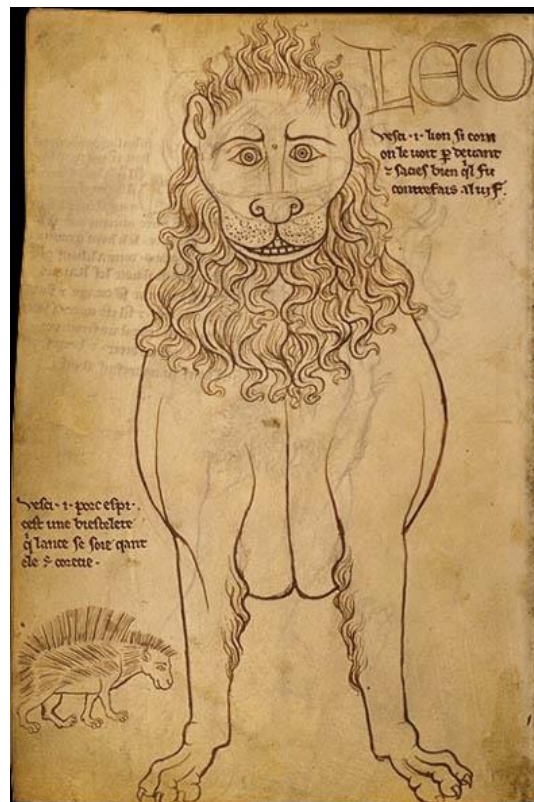 LEO
Vesci .i. lion si com
on le voit p devant
⁊ sacies bien ql fu
contrefais al vif.
Vesci .i. porc espi.
cest une biestelete
q lance se soie qant
ele ÷ corecie.